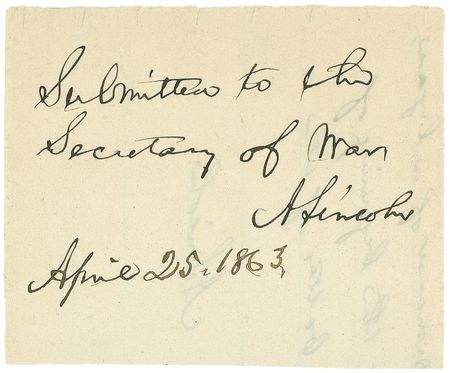 Submitted to the
Secretary of War,
A Lincoln
April 25, 1863,